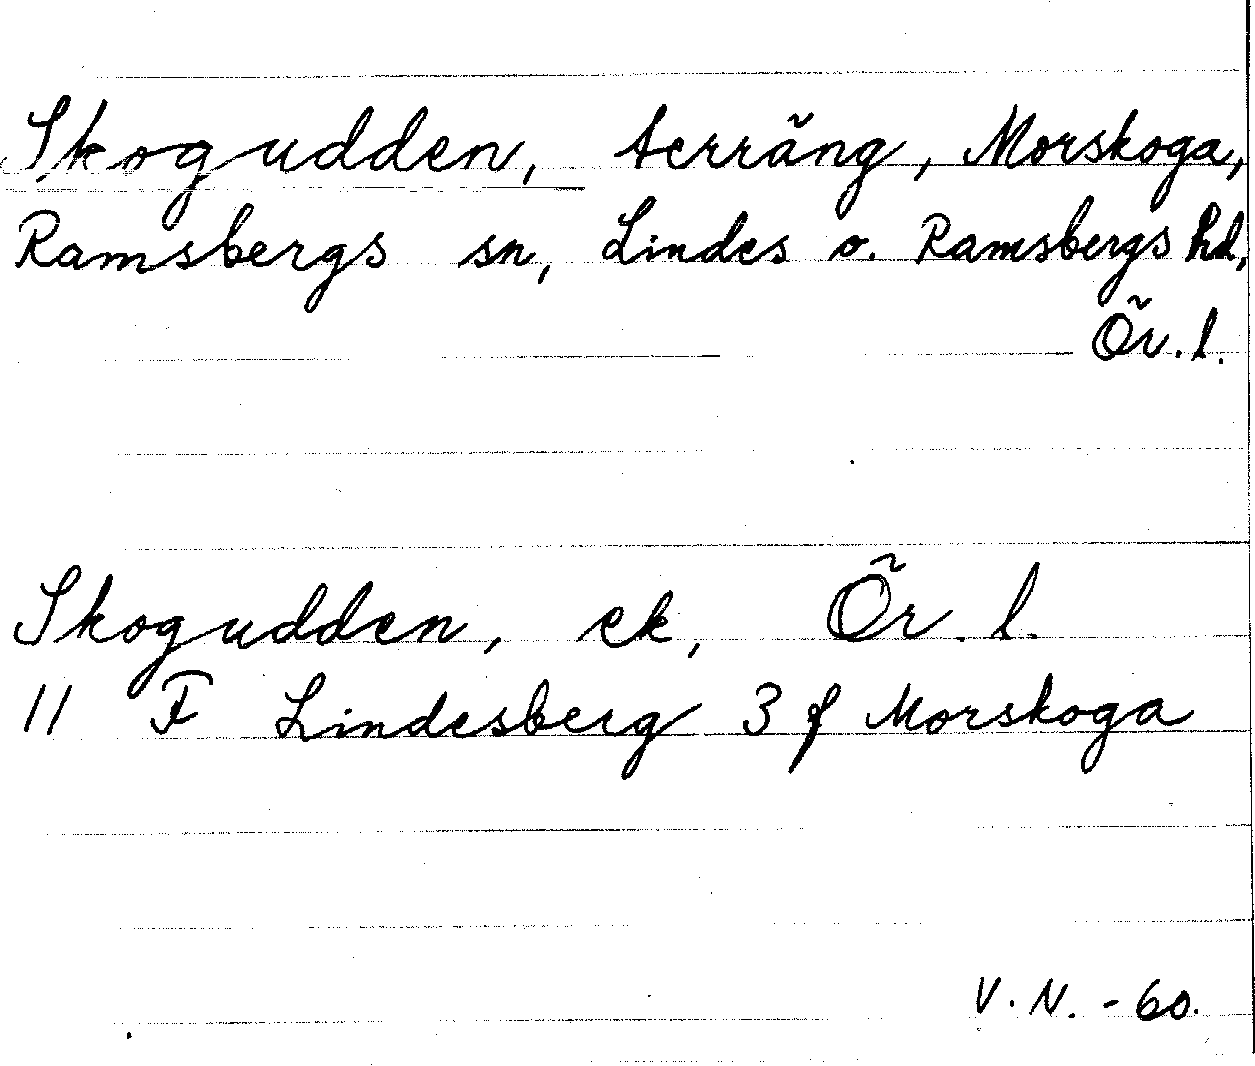 Skogudden, terräng, Morskoga,
Ramsbergs sn, Lindes o. Ramsbergs hd,
Ör. l.
Skogudden, ek, Ör. l.
11 F Lindesberg 3 f Morskoga
V. N. -60.